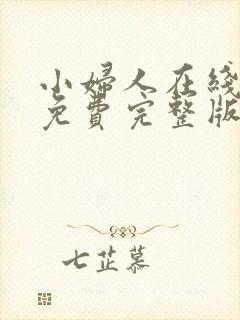 小婦人在綫
免費完整版
七芷慕